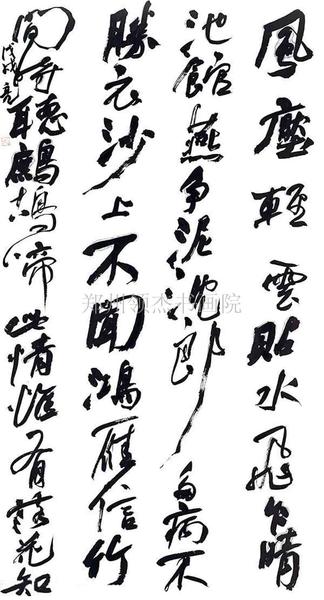 風壓輕雲貼水飛乍晴
池館燕争泥沈郎多病不
勝衣沙上不聞鴻雁信竹
間時聽鷓鴣啼此情惟有落花知
戊戌亮
郑州领杰书画院